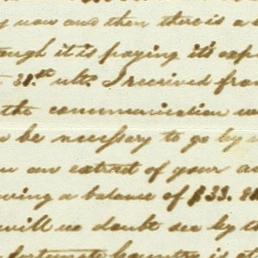 now and then there is a
it is paying it's exp
30.th ult.o I received from
the communication w
be necessary to go by
an extract of your a
a balance of $33.
will no doubt see by th
country is